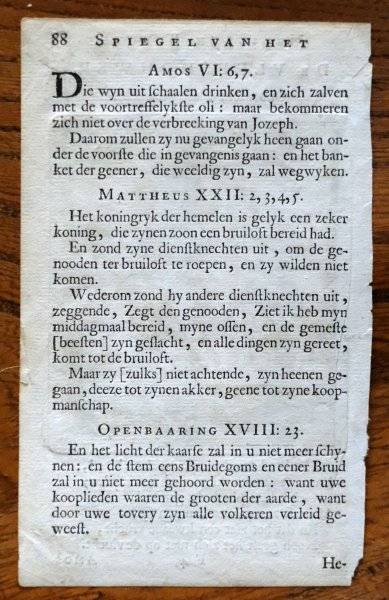 88 SPIEGEL VAN HET
AMOS VI: 6, 7.
Die wyn uit schaalen drinken, en zich zalven
met de voortreffelykste oli: maar bekommeren
zich niet over de verbreeking van Jozeph.
Daarom zullen zy nu gevangelyk heen gaan on-
der de voorste die in gevangenis gaan: en het ban-
ket der geener, die weeldig zyn, zal wegwyken.
MATTHEUS XXII: 2, 3, 4, 5.
Het koningryk der hemelen is gelyk een zeker
koning, die zynen zoon een bruiloft bereid had.
En zond zyne dienstknechten uit, om de ge-
nooden ter bruiloft te roepen, en zy wilden niet
komen.
Wederom zond hy andere dienstknechten uit,
zeggende, Zegt den genooden, Ziet ik heb myn
middagmaal bereid, myne ossen, en de gemeste
[beesten] zyn geslacht, en alle dingen zyn gereet,
komt tot de bruiloft.
Maar zy [zulks] niet achtende, zyn heenen ge-
gaan, deeze tot zynen akker, geene tot zyne koop-
manschap.
OPENBAARING XVIII: 23.
En het licht der kaarse zal in u niet meer schy-
nen: en de stem eens Bruidegoms en eener Bruid
zal in u niet meer gehoord worden: want uwe
kooplieden waaren de grooten der aarde, want
door uwe tovery zyn alle volkeren verleid ge-
weest.
He-